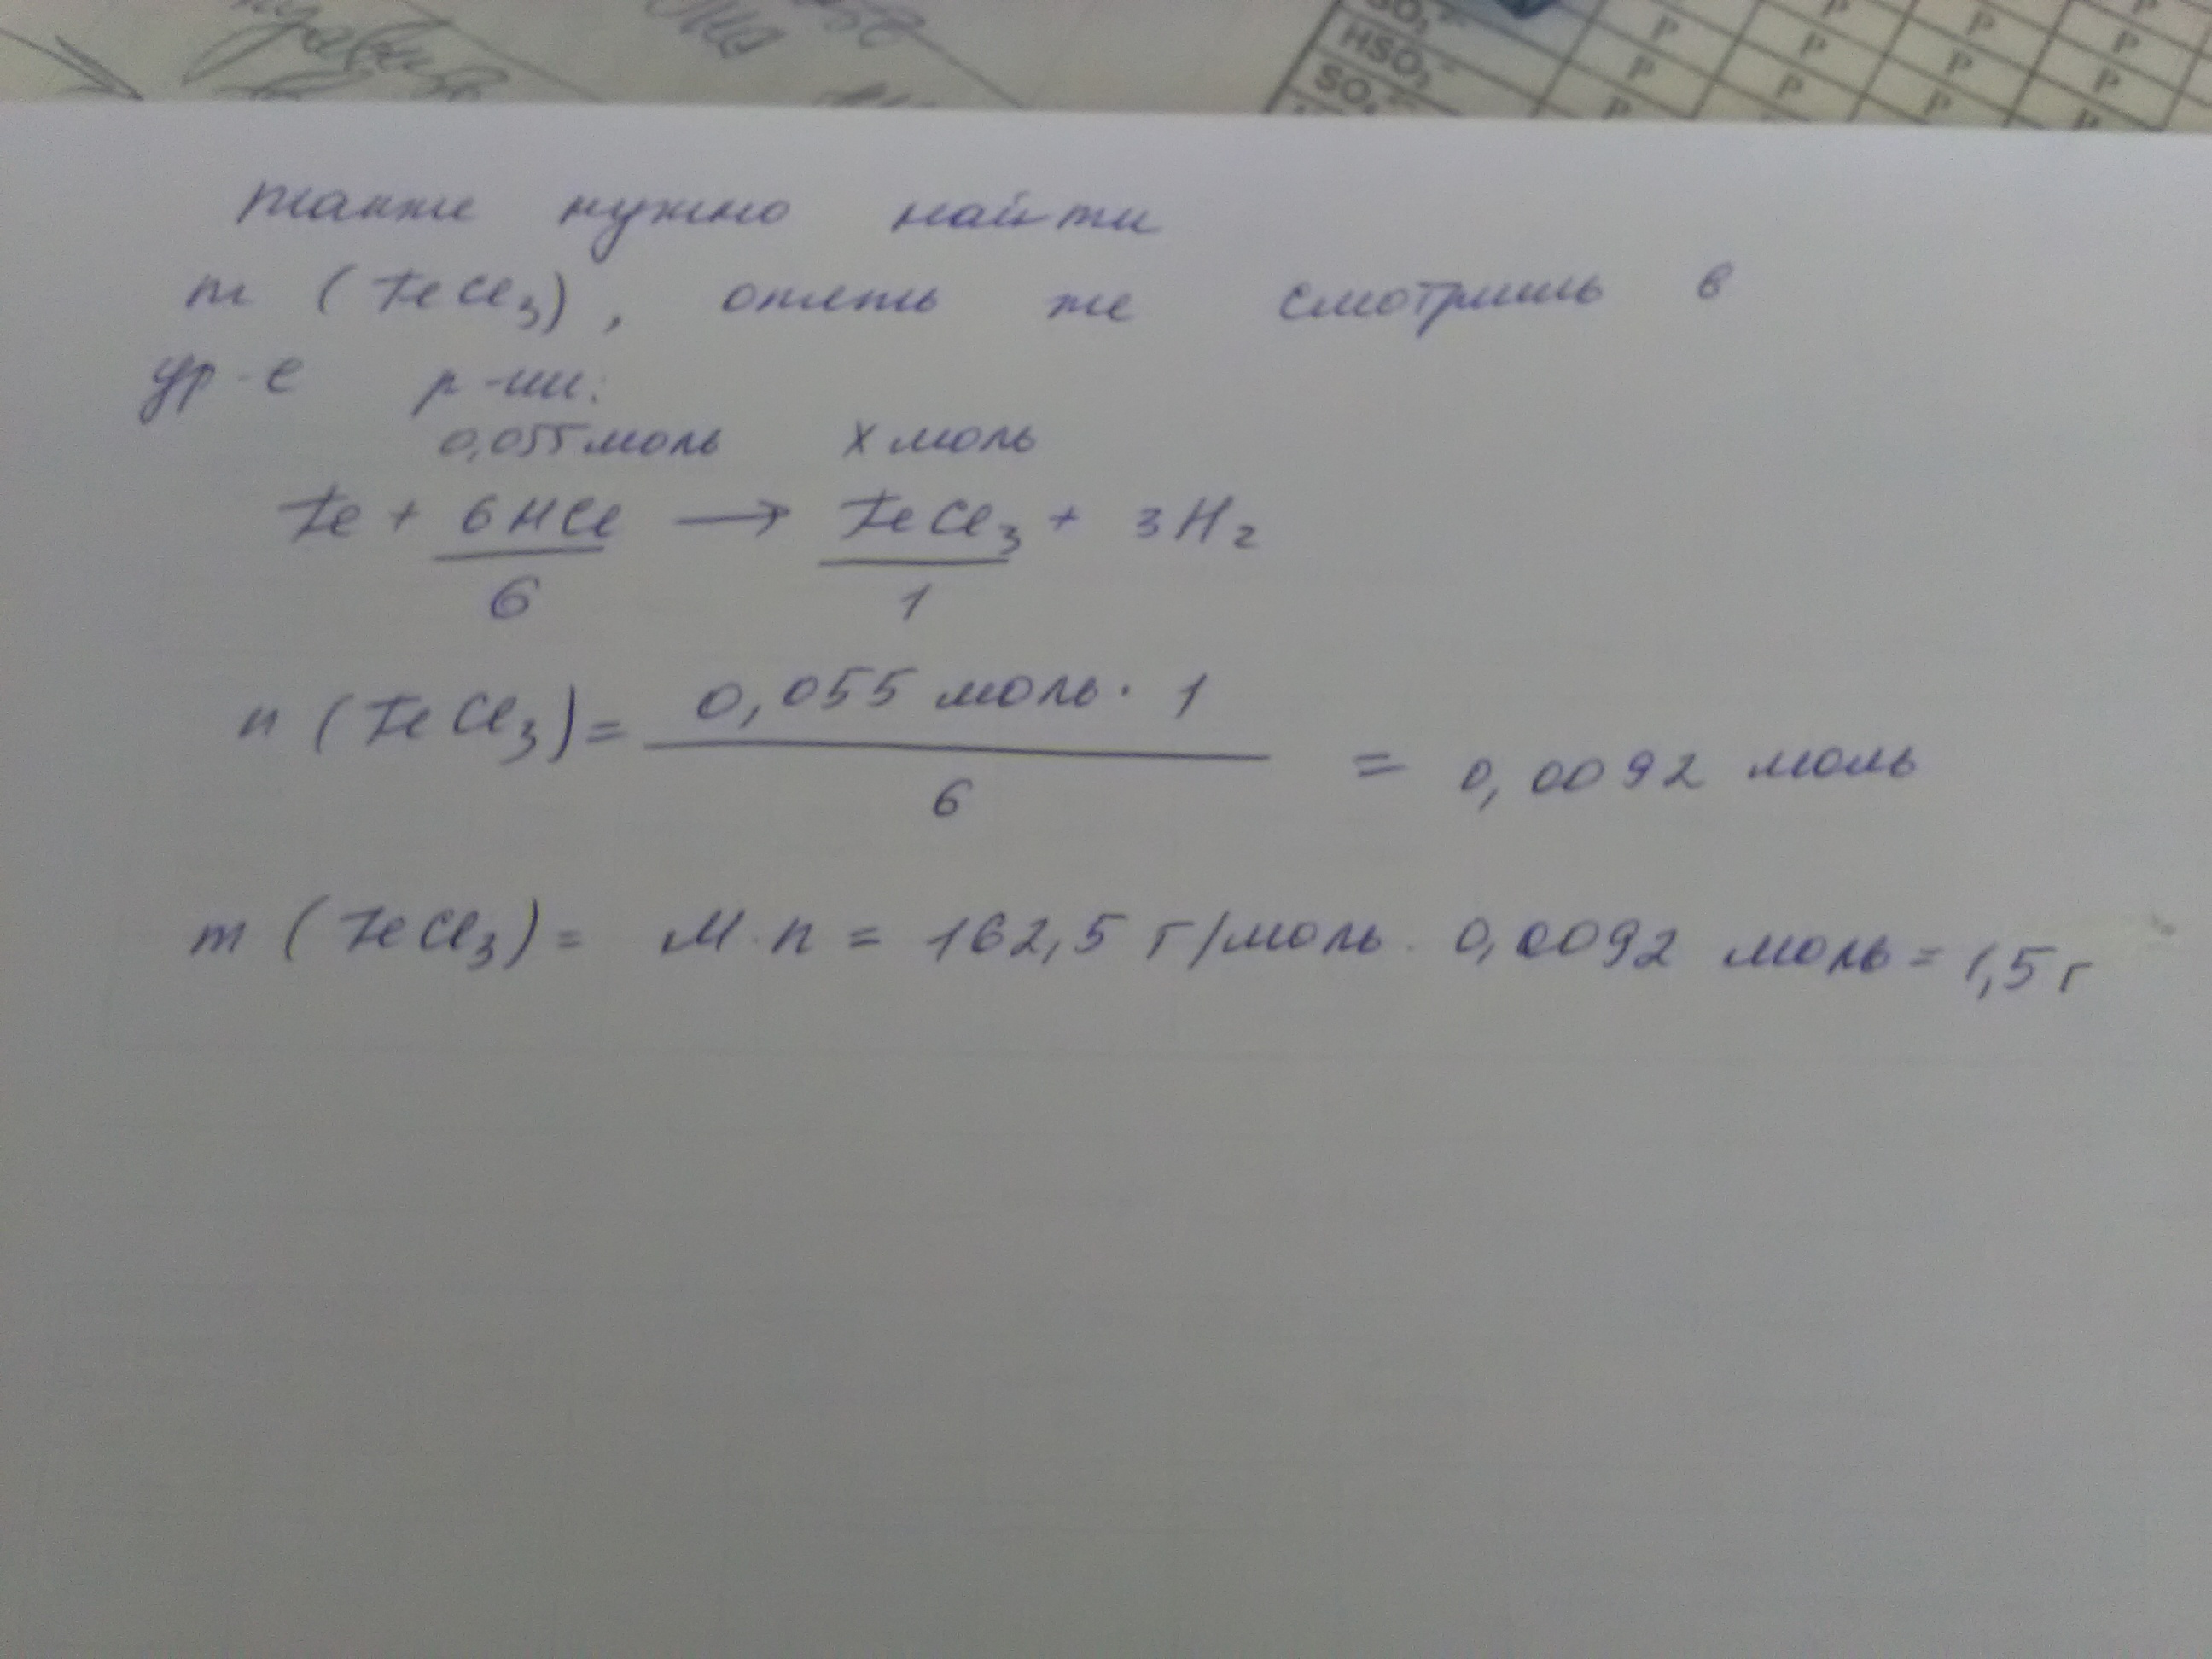 SO₃²⁻ Р Р Р Р
HSO₃⁻ Р Р Р Р
SO₄²⁻ Р Р Р Р
также нужно найти
m (FeCl₃), опять же смотришь в
ур-е р-ии:
0,055 моль x моль
Fe + 6HCl → FeCl₃ + 3H₂
6 1
n (FeCl₃) = 0,055 моль · 1 / 6 = 0,0092 моль
m (FeCl₃) = M · n = 162,5 г/моль · 0,0092 моль = 1,5 г